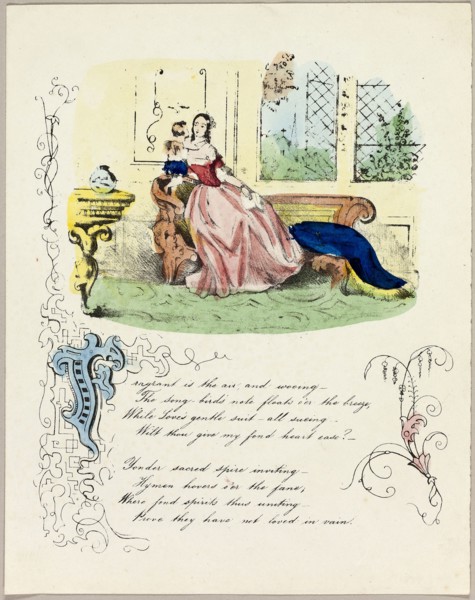 Fragrant is the air, and wooing—
The song-birds note floats o'er the breeze,
While Loves gentle suit—all sueing—
Wilt thou give my fond heart ease?—
Yonder sacred spire inviting—
Hymen hovers o'er the fane,
Where fond spirits thus uniting—
Prove they have not loved in vain.